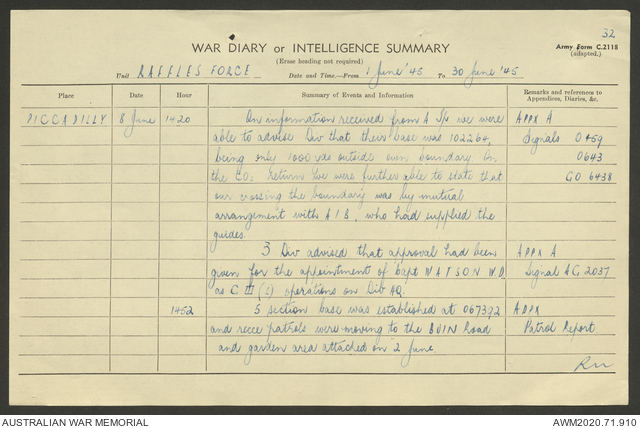 32
WAR DIARY or INTELLIGENCE SUMMARY
Army Form C.2118
(adapted.)
(Erase heading not required)
Unit RAFFLES FORCE Date and Time.—From 1 June '45 To 30 June '45
Place Date Hour Summary of Events and Information Remarks and references to
Appendices, Diaries, &c.
PICCADILLY 8 June 1420 On information received from A we were APPX A
able to advise Div that their base was 102264, Signals 0459
being only 1000 yds outside own boundary. On 0643
the CO's return we were further able to state that GO 6438
our crossing the boundary was by mutual
arrangement with AIB, who had supplied the
guides.
3 Div advised that approval had been APPX A
given for the appointment of Capt WATSON W.D. Signal AG 2037
as G III operations on Div HQ.
1452 5 section base was established at 067392 APPX
and recce patrols were moving to the BUIN Road Patrol Report.
and garden area attached on 2 June.
AUSTRALIAN WAR MEMORIAL AWM2020.71.910